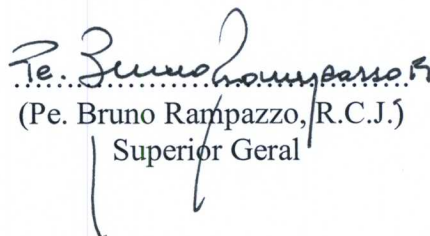 Pe. Bruno Rampazzo R
(Pe. Bruno Rampazzo, R.C.J.)
Superior Geral